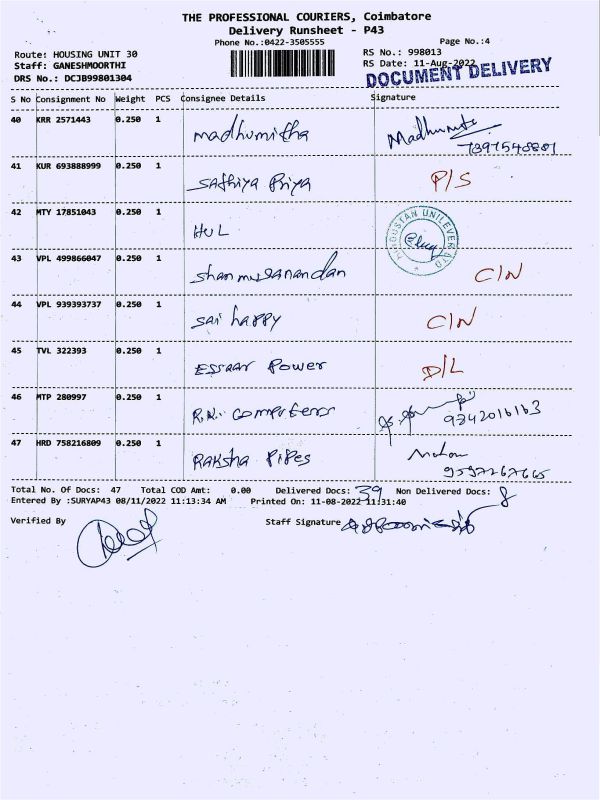 THE PROFESSIONAL COURIERS, Coimbatore
Delivery Runsheet - P43
Phone No.:0422-3505555
Page No.:4
Route: HOUSING UNIT 30
RS No.: 998013
Staff: GANESHMOORTHI
RS Date: 11-Aug-2022
DRS No.: DCJB99801304
DOCUMENT DELIVERY
S No Consignment No Weight PCS Consignee Details Signature
40 KRR 2571443 0.250 1 Madhumitha
41 KUR 693888999 0.250 1 Sathiya Priya P/S
42 MTY 17851043 0.250 1 HUL HINDUSTAN UNILEVER LTD
43 VPL 499866047 0.250 1 C/N
44 VPL 939393737 0.250 1 Sai happy C/N
45 TVL 322393 0.250 1 Essaar Power D/L
46 MTP 280997 0.250 1 R.K. Computers 9342016163
47 HRD 758216809 0.250 1 Raksha Pipes Mohan 9597267665
Total No. Of Docs: 47 Total COD Amt: 0.00 Delivered Docs: 39 Non Delivered Docs: 8
Entered By :SURYAP43 08/11/2022 11:13:34 AM Printed On: 11-08-2022 11:31:40
Verified By Staff Signature